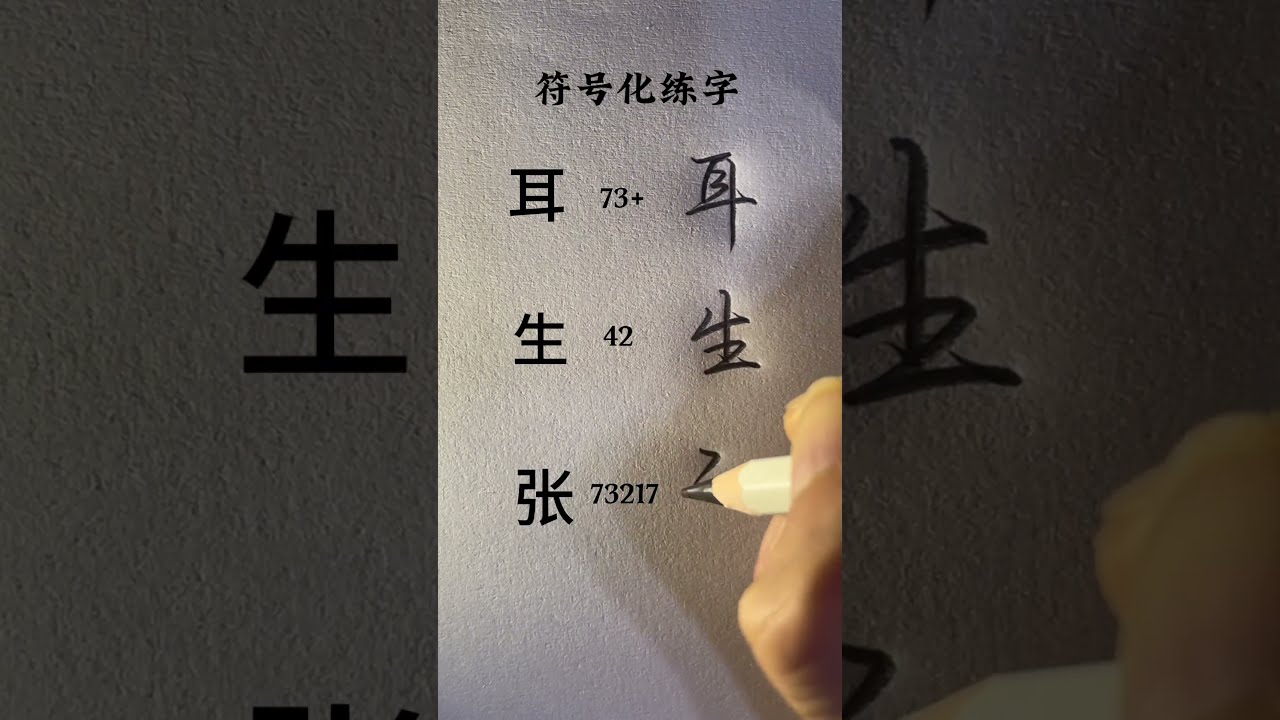 符号化练字
耳 73+ 耳
生 42 生
张 73217